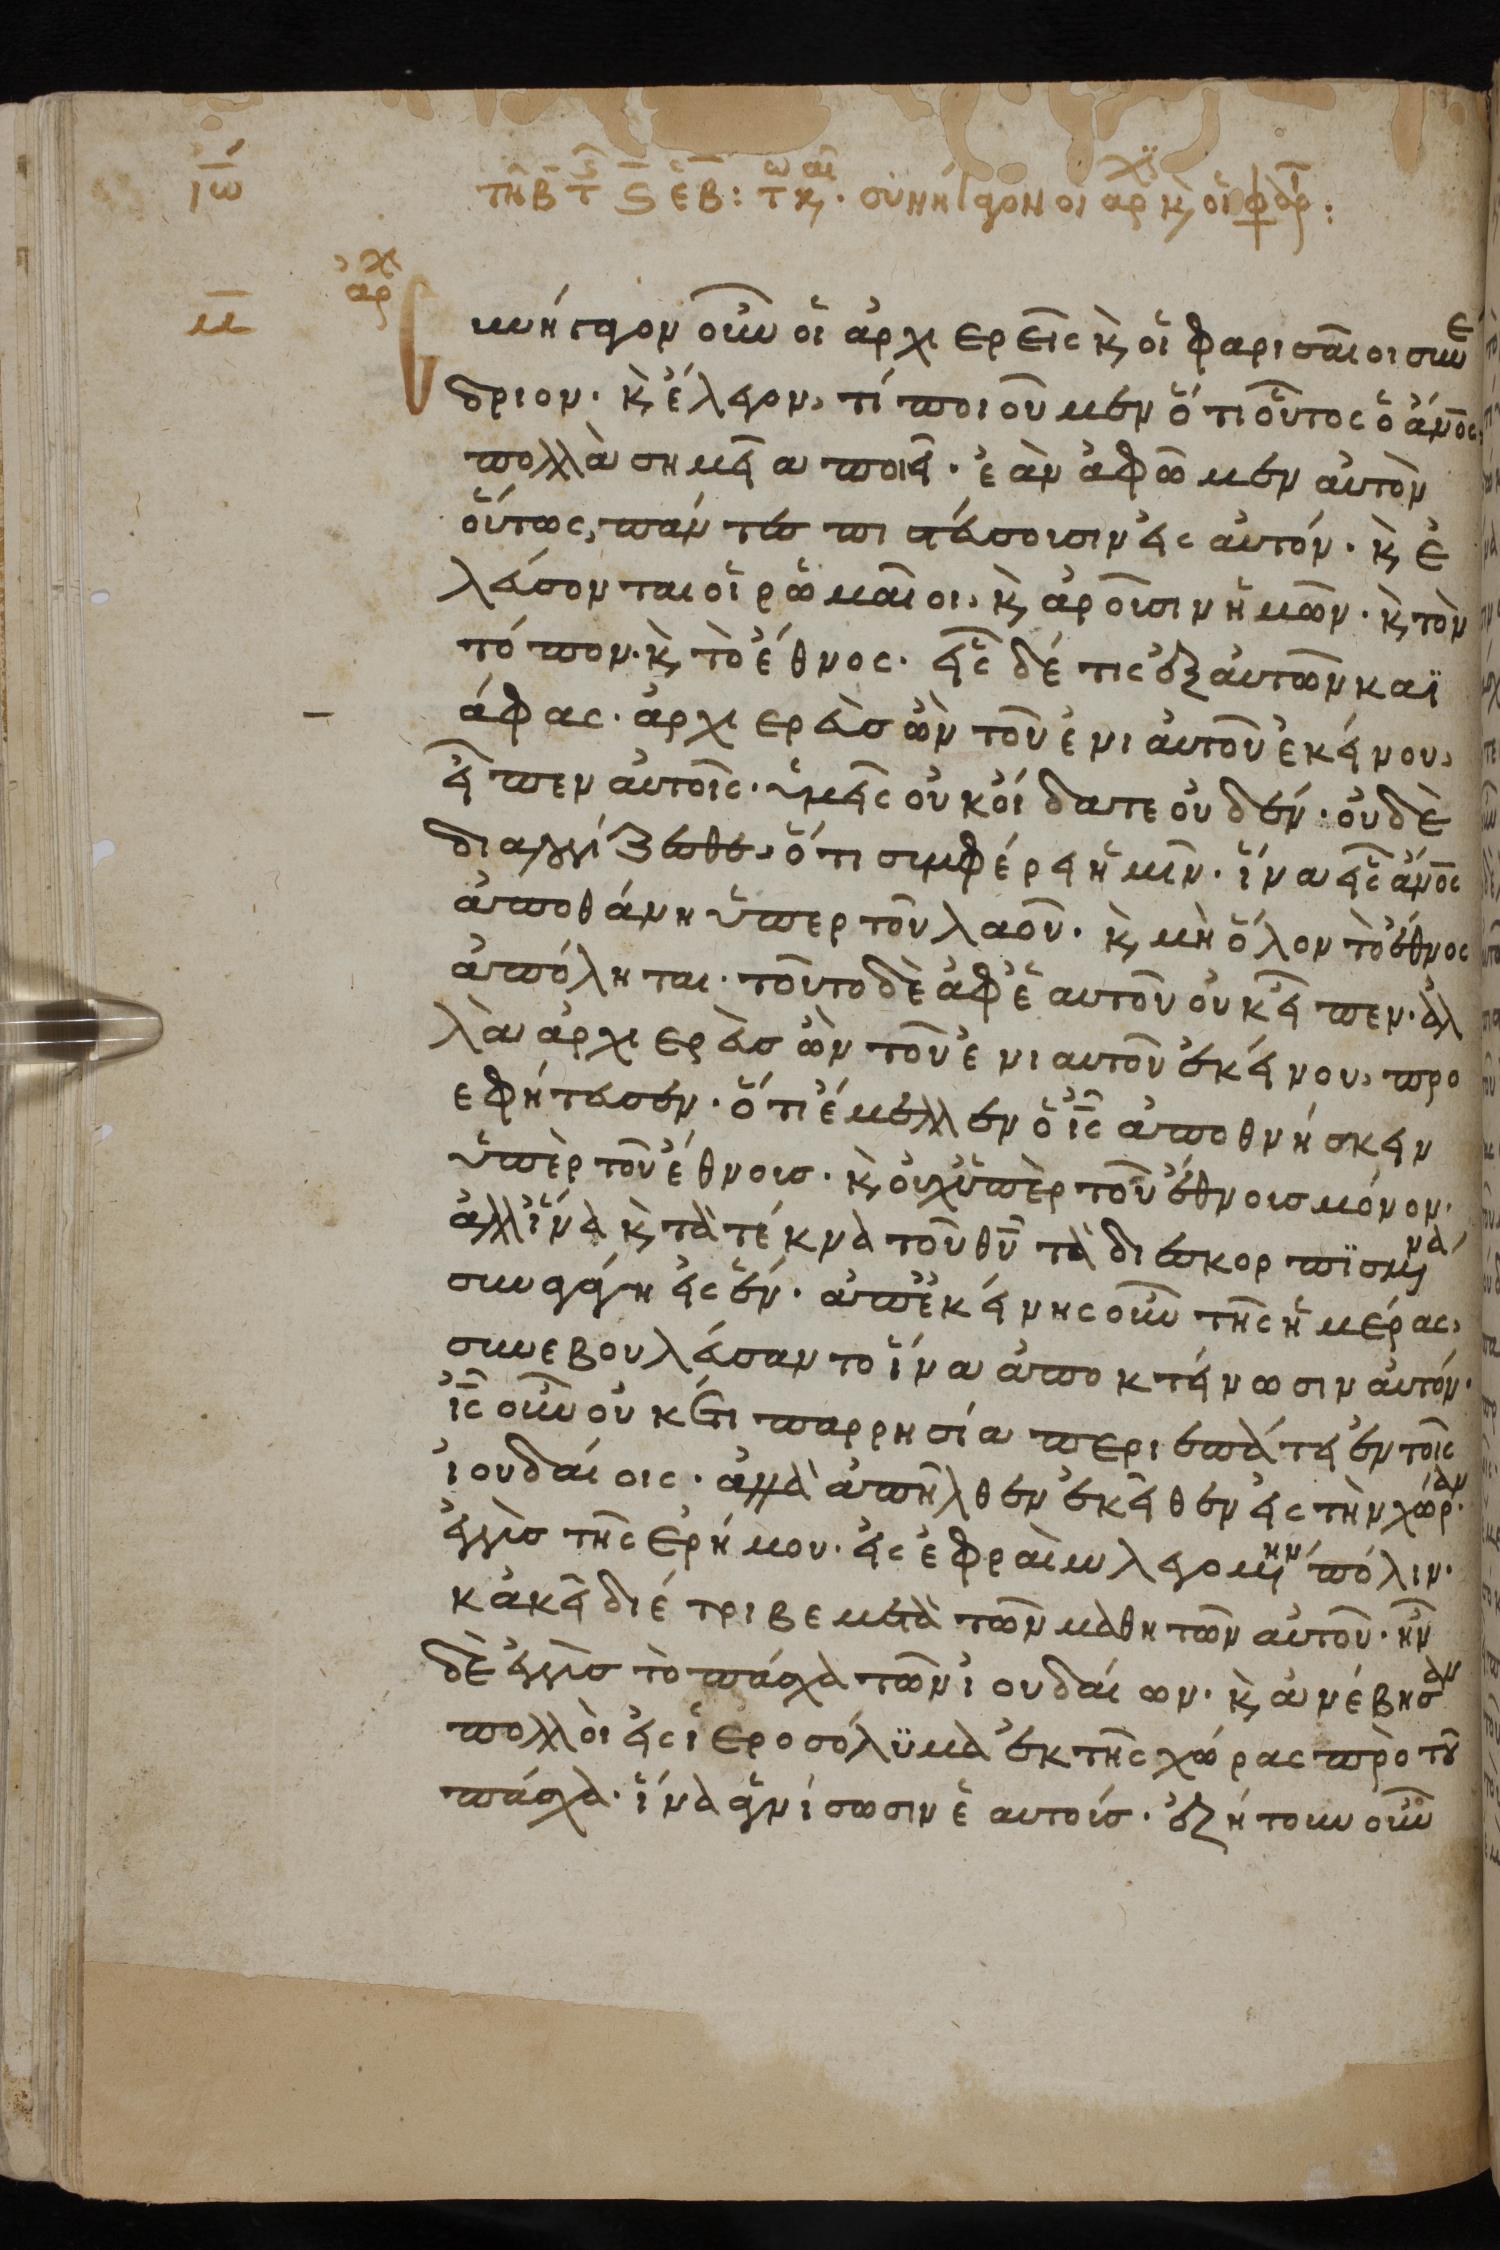 ιω
τη β τ ϛ εβ: τ κ. συνήγαγον οι αρχ κ, οι φαρ:
αρχ
μ
υνήγαγον οὖν οἱ ἀρχιερεῖς κ, οἱ φαρισαῖοι συνε
δριον. κ, ἔλεγον, τί ποιοῦμεν ὅτι οὗτος ὁ ἄνος
πολλὰ σημεῖα ποιεῖ. ἐὰν ἀφῶμεν αὐτὸν
οὕτως, πάντες πιστεύσουσιν εἰς αὐτόν. κ, ἐ
λεύσονται οἱ ῥωμαῖοι, κ, ἀροῦσιν ἡμῶν. κ, τὸν
τόπον. κ, τὸ ἔθνος. εἷς δέ τις ἐξ αὐτῶν καϊ
άφας. ἀρχιερεὺσ ὢν τοῦ ἐνιαυτοῦ ἐκείνου,
εἶπεν αὐτοῖς. ὑμεῖς οὐκ οἴδατε οὐδέν. οὐδὲ
διαλογίζεσθε, ὅτι συμφέρει ἡμῖν. ἵνα εἷς ἄνος
ἀποθάνη ὑπερ τοῦ λαοῦ. κ, μὴ ὅλον τὸ ἔθνος
ἀπόληται. τοῦτο δὲ ἀφ' ἑαυτοῦ οὐκ εἶπεν. ἀλ
λὰ ἀρχιερεὺσ ὢν τοῦ ἐνιαυτοῦ ἐκείνου, προ
εφήτευσεν. ὅτι ἔμελλεν ὁ ις ἀποθνήσκειν
ὑπὲρ τοῦ ἔθνουσ. κ, οὐχ ὑπὲρ τοῦ ἔθνουσ μόνον.
ἀλλ' ἵνα κ, τὰ τέκνα τοῦ θυ τὰ διεσκορπϊσμένα
συναγάγη εἰς ἕν. ἀπ' ἐκείνης οὖν τῆς ἡμέρας,
συνεβουλεύσαντο ἵνα ἀποκτείνωσιν αὐτόν.
ις οὖν οὐκέτι παρρησία περιεπάτει ἐν τοῖς
ἰουδαίοις. ἀλλὰ ἀπῆλθεν ἐκεῖθεν εἰς τὴν χώραν.
ἐγγὺσ τῆς ἐρήμου. εἰς ἐφραὶμ λεγομένην πόλιν.
κἀκεῖ διέτριβε μετὰ τῶν μαθητῶν αὐτοῦ. ἦν
δὲ ἐγγὺσ τὸ πάσχα τῶν ἰουδαίων. κ, ἀνέβησαν
πολλοὶ εἰς ἱεροσόλϋμα ἐκ τῆς χώρας πρὸ τοῦ
πάσχα. ἵνα ἁγνίσωσιν ἑαυτούσ. ἐζήτουν οὖν